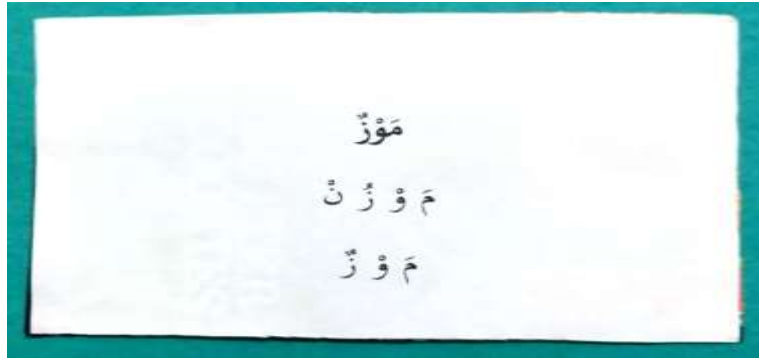 مَوْزٌ
مَ وْ زُ نْ
مَ وْ زٌ